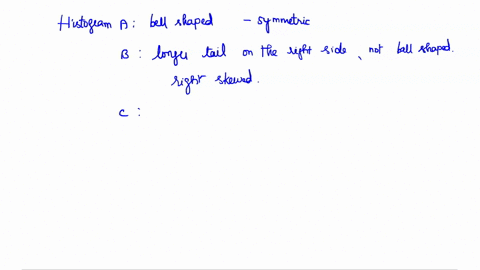 Histogram A : bell shaped - symmetric
B : longer tail on the right side, not bell shaped.
right skewed.
C :